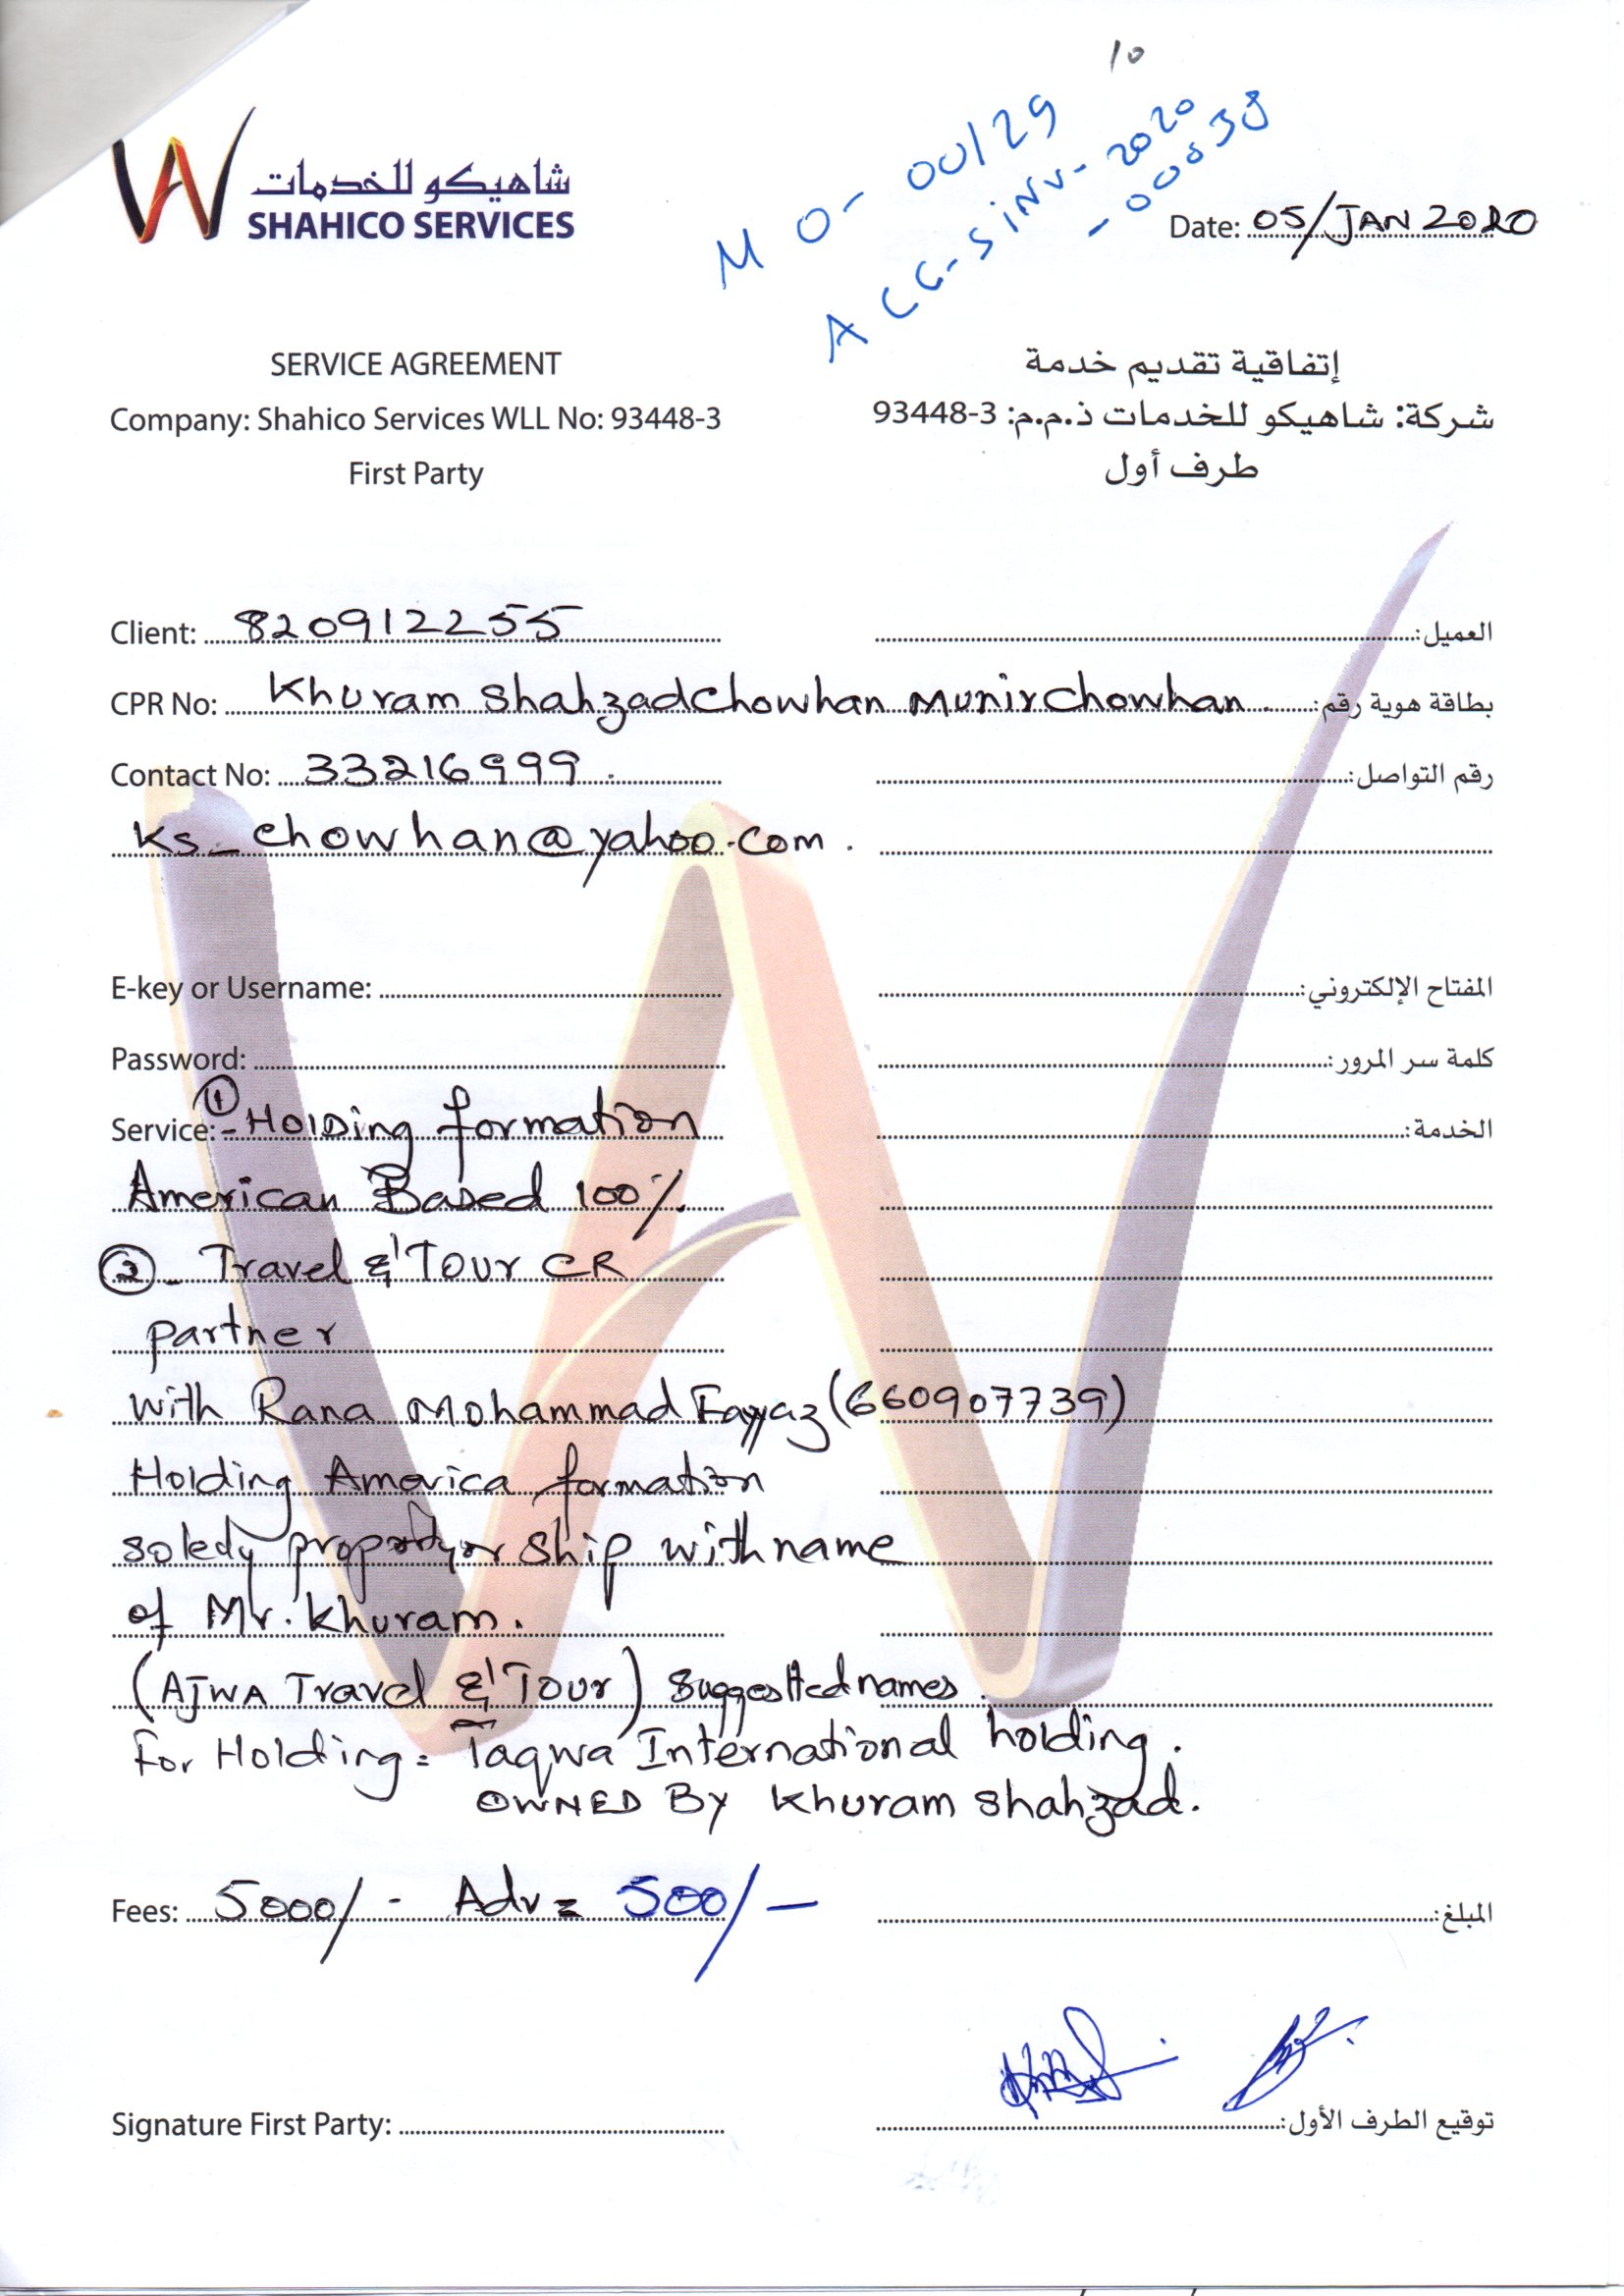 10
M O- 00129
ACC-SINV-2020
-00038
شاهيكو للخدمات
SHAHICO SERVICES
Date: 05/JAN 2020
SERVICE AGREEMENT
إتفاقية تقديم خدمة
Company: Shahico Services WLL No: 93448-3
شركة: شاهيكو للخدمات ذ.م.م: 3-93448
First Party
طرف أول
Client: 820912255 العميل:
CPR No: Khuram Shahzad Chowhan Munir Chowhan. بطاقة هوية رقم:
Contact No: 33216999. رقم التواصل:
ks_chowhan@yahoo.com.
E-key or Username: المفتاح الإلكتروني:
Password: كلمة سر المرور:
Service: ① - Holding formation الخدمة:
American Based 100%.
② - Travel & Tour CR
partner
with Rana Mohammad Fayyaz (660907739)
Holding America formation
ship with name
of Mr. Khuram.
(AJWA Travel & Tour) Suggestted names.
For Holding = Taqwa International holding.
OWNED By Khuram Shahzad.
Fees: 5000/- Adv = 500/- المبلغ:
Signature First Party: توقيع الطرف الأول: